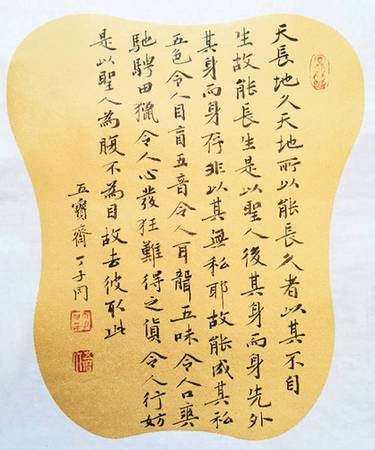 天長地久天地所以能長久者以其不自
生故能長生是以聖人後其身而身先外
其身而身存非以其無私耶故能成其私
五色令人目盲五音令人耳聾五味令人口爽
馳騁田獵令人心發狂難得之貨令人行妨
是以聖人為腹不為目故去彼取此
五寶齋 丁子同